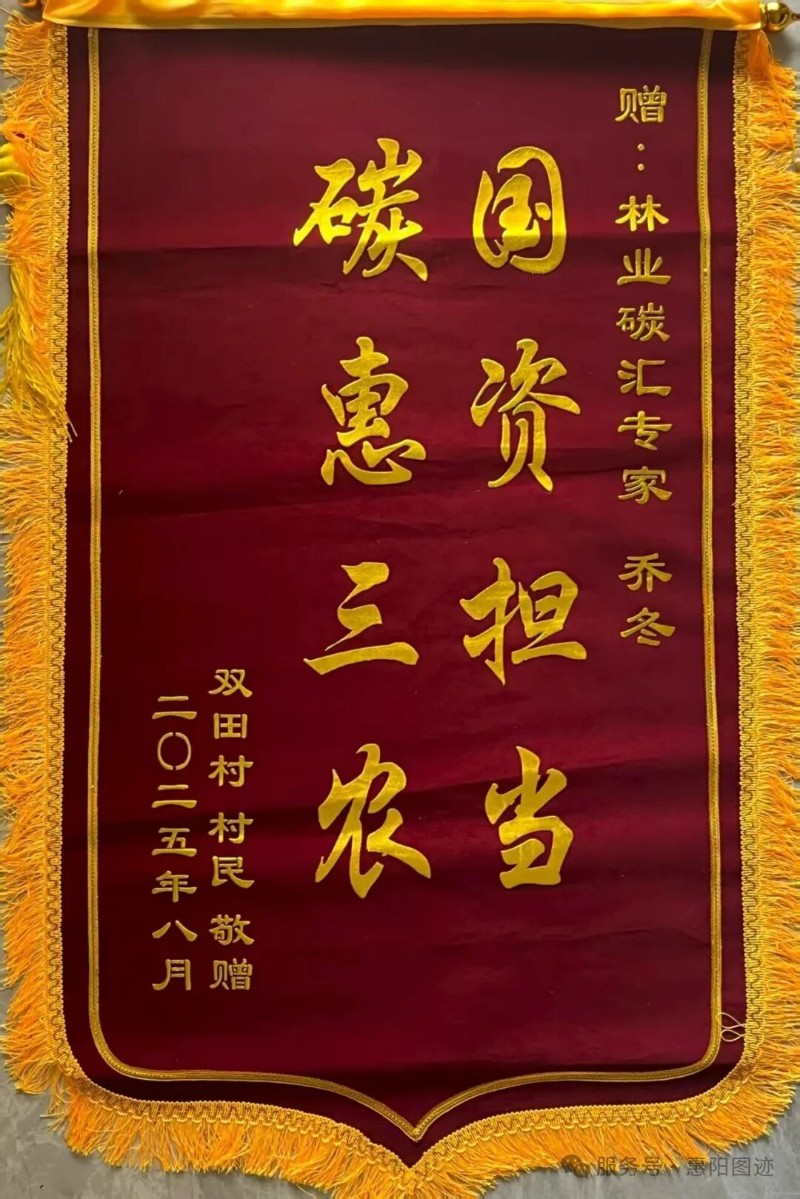 赠：林业碳汇专家 乔冬
国资担当
碳惠三农
双田村 村民 敬赠
二〇二五年八月
服务号 · 惠阳图迹